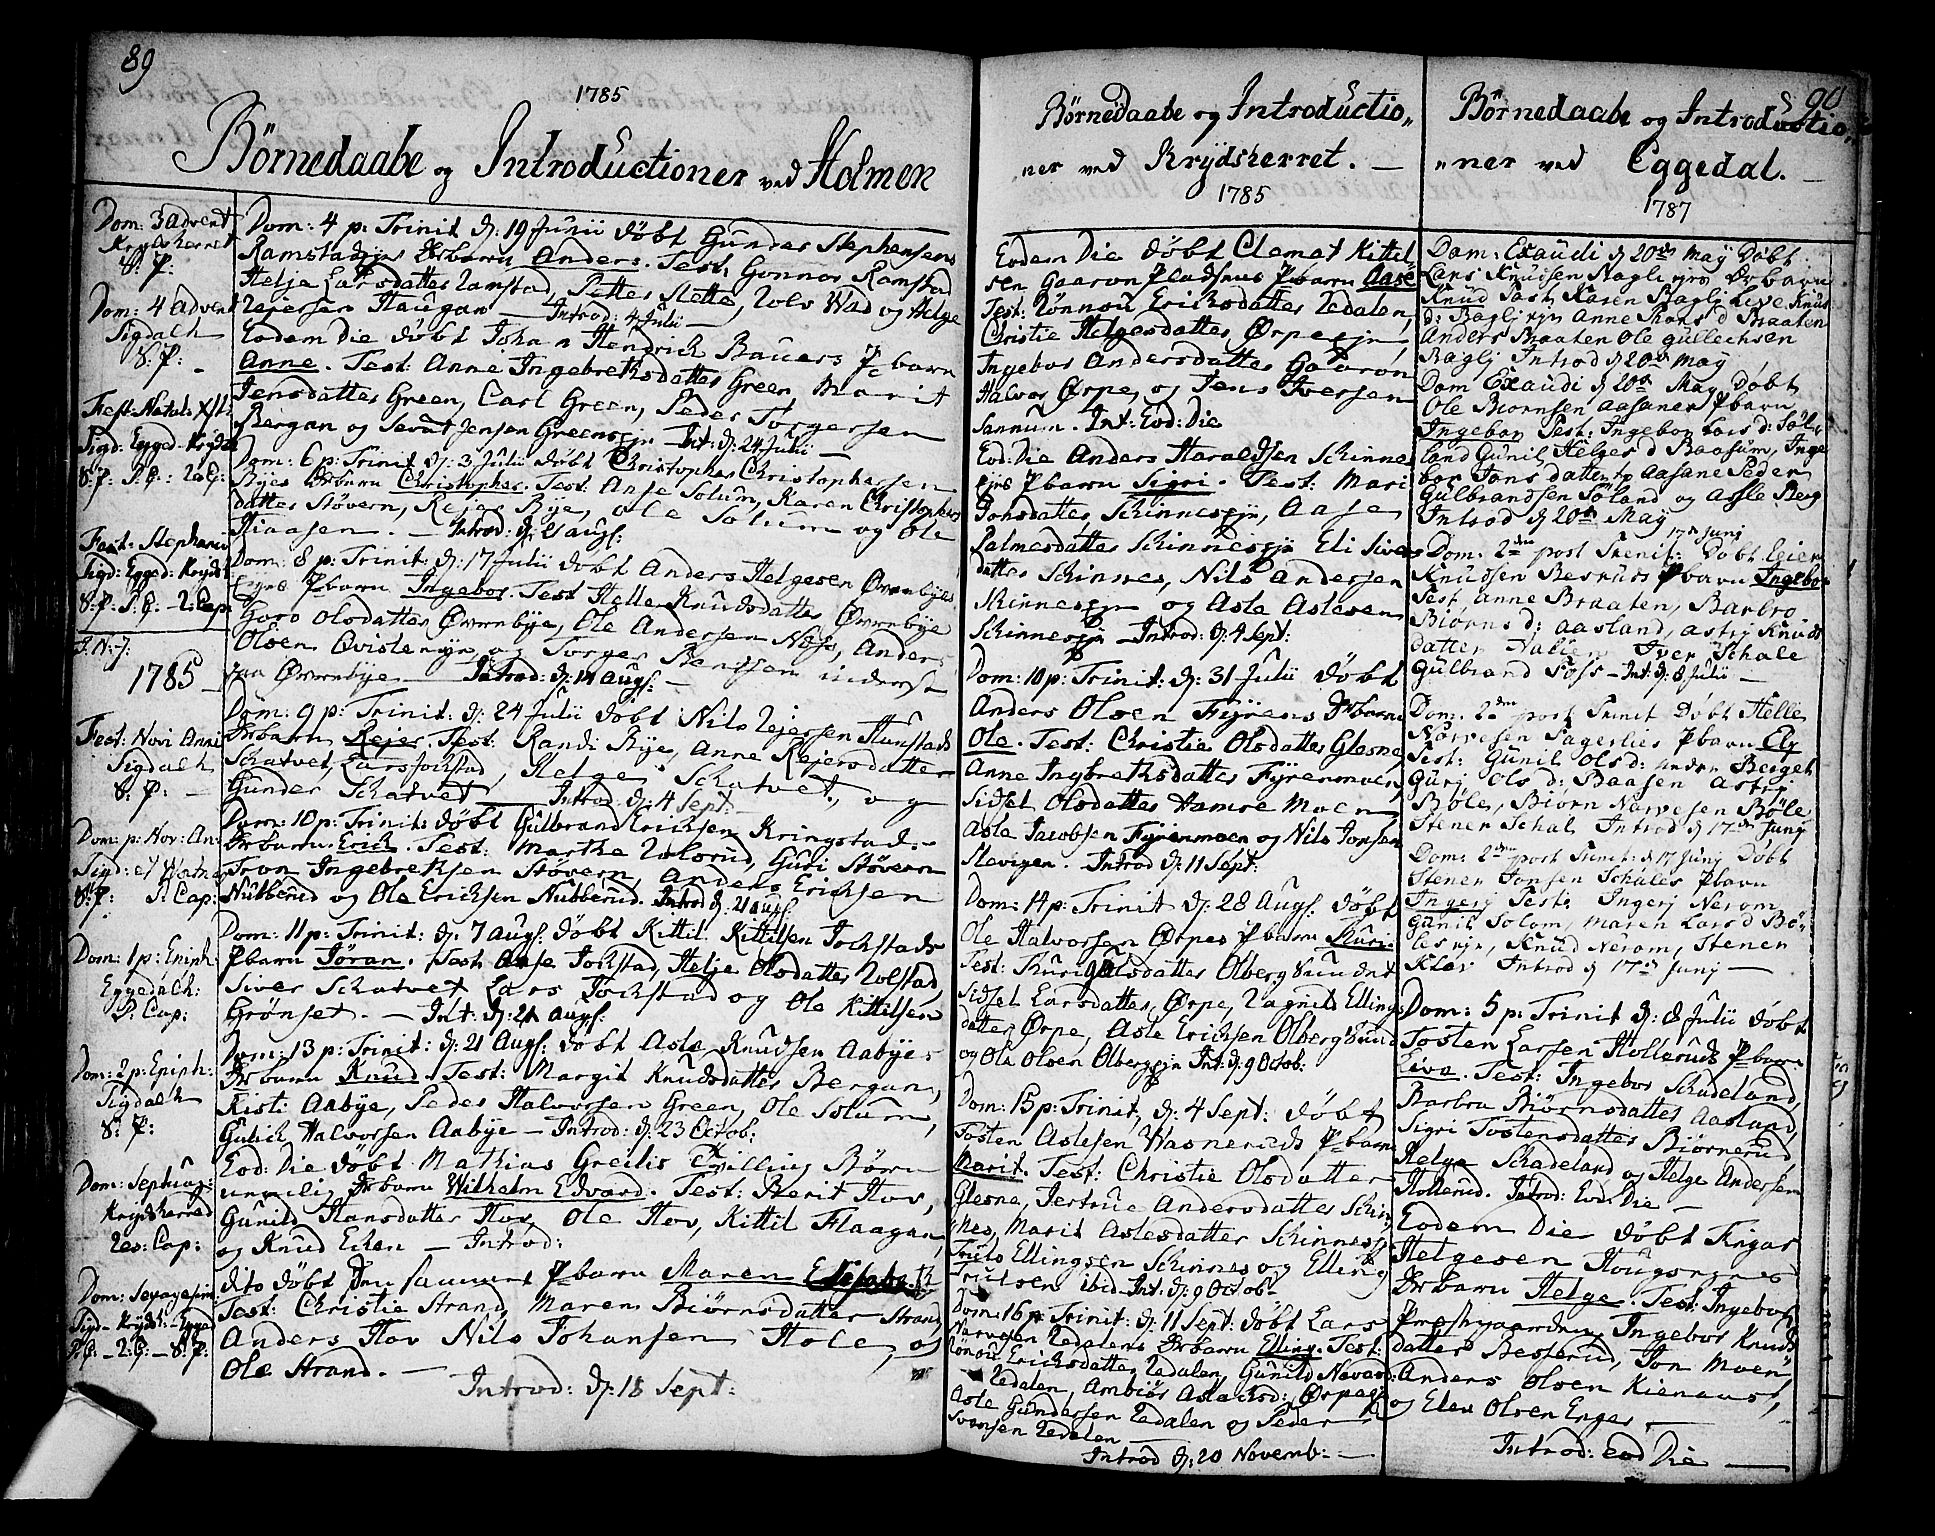 89
1785
Börnedaabe og Introductioner ved Holmen
Dom: 3 Advent
Krydsherret
S: P:
Dom: 4 Advent
Sigdalh
S: P:
Fest: Natal: Xsti
Sigd: Egged: Kryds
S: P: P: C: Res: C:
Fest: Stephani
Sigd: Egged: Krydsh
S: P: P: C: - 2: Cap:
J. N. J:
1785
Fest: Novi Anni
Sigdalh
S: P: -
Dom: p: Nov: An:
Sigd: et
S: P: P: Cap:
Dom: 1 p: Epiph:
Eggedalh:
P: Cap:
Dom: 2 p: Epiph:
Sigdalh
S: P:
Dom: Septuag:
Krydsherred
Res: Cap:
Dom: Sexagesim
Sigd - Krydsh: - Egged
P: C: - 2: C: - S: P:
Dom: 4 p: Trinit d: 19 Junii döbt Gunder Stephensens
Ramstadejes Drbarn Anders. Test: Gonnor Ramstad
Helje Larsdatter Ramstad, Petter Slette, Rolv Wad og Helge
Rejersen Haugan - Introd: 4 Julii -
Eodem Die döbt Johan Hendrich Bauers P barn
Anne. Test: Anne Ingebrethsdatter Green, Marit
Jensdatter Green, Carl Green, Peder Torgersen
Bergan og Jensen Greensejn - Int: d: 24 Julii -
Dom: 6 p: Trinit d: 3 Julii döbt Christopher Christophersen
Byes Drbarn Christopher. Test: Anne Solum, Karen Christophers
datter Stövern, Rejer Bye, Ole Solum og Ole
Hiaasen. - Introd: d: 21 Augs:
Dom: 8 p: Trinit: d: 17 Julii döbt Anders Helgesen Övernbyes
Ejes P barn Ingebor. Test Helle Knudsdatter Övernbye
Goro Olsdatter Övernbye, Ole Andersen Næss, Anders
Olsen Qvistenejn, og Torger Berntsen inderst
paa Övernbye - Introd: d: 14 Augs: -
Dom: 9 p: Trinit: d: 24 Julii döbt Nils Rejersen Hunstads
Drbarn Rejer. Test: Randi Bye, Anne Rejersdatter
Schatvet, Lars Jokstad, Helge Schatvet, og
Gunder Schatvet - Introd: d: 4 Sept:
Dom: 10 p: Trinit: döbt Gulbrand Erichsen Kringstad -
Drbarn Erich. Test: Marthe Rolsrud, Guri Stövern
Tron Ingebrethsen Stövern, Anders Erichsen
Nubberud og Ole Erichsen Nubberud. Introd d: 21 Augs:
Dom: 11 p: Trinit: d: 7 Augs: döbt Kittil Kittilsen Jochstads
P barn Jöran. Test: Anne Jochstad, Helje Olsdatter Rolstad,
Siver Schatvet Lars Jochstad og Ole Kittilsen
Grönset. - Int: d: 21 Augs:
Dom: 13 p: Trinit: d: 21 Augs: döbt Asle Knudsen Aabyes
Drbarn Knud. Test: Margit Knudsdatter Bergan,
Kisti: Aabye, Peder Halvorsen Green, Ole Solum,
Gulich Halvorsen Aabye - Introd: d: 23 Octob:
Eod: Die döbt Mathias Greilis Tvilling Börn
nemlig Drbarn Wilhelm Edvard. Test: Berit Hov,
Gunild Hansdatter Hov, Ole Hov, Kittil Flaagan,
og Knud Eken - Introd:
dito döbt Den sammes P barn Maren Elisabeth
Test: Christie Strand, Maren Biörnsdatter Strand
Anders Hov Nils Johansen Hole, og
Ole Strand. -
Introd: d: 18 Sept:
Börnedaabe og Introductio„
ner ved Krydsherret. -
1785
Eodem Die döbt Clemet Kittil
sen Gaaron Pladsens P barn Aase
Test: Rönnou Erichsdatter Redalen,
Christie Helgesdatter Örpeejn,
Ingebor Andersdatter Gaaron
Halvor Örpe, og Jens Iversen
Sannum. Int: Eod: Die
Eod: Die Anders Haraldsen Schinnes
Ejes P barn Sigri. Test: Mari
Jonsdatter Schinnesejn, Aase
Salmesdatter Schinnesejn Eli Sivers
datter Schinnes, Nils Andersen
Skinnesejn og Asle Aslesen
Schinnesejn - Introd: d: 4 Sept:
Dom: 10 p: Trinit: d: 31 Julii döbt
Anders Olsen Fyrens Drbarn
Ole. Test: Christie Olsdatter Glesne
Anne Ingebrethsdatter Fyrenmoen,
Sidsel Olsdatter Hamre Moen,
Asle Jacobsen Fyrenmoen og Nils Jonsen
Slevigen. Introd d: 11 Sept:
Dom: 14 p: Trinit d: 28 Augs: döbt
Ole Halvorsen Örpes P barn Thuri.
Test: Thuri Olsdatter Olberg Sundet
Sidsel Larsdatter Örpe, Ragnild Ellings
datter Örpe, Asle Erichsen Olberg Sund
og Ole Olsen Olbergejn Int: d: 9 Octob:
Dom: 15 p: Trinit, d: 4 Sept: döbt
Tosten Aslesen Wasneruds P barn
Marit. Test: Christie Olsdatter
Glesne, Jertrue Andersdatter Schin
nes, Marit Aslesdatter Schinnes
Truls Ellingsen Schinnes og Elling
Trulsen ibid. Int: d: 9 Octob -
Dom: 16 p: Trinit: d: 11 Sept: döbt Lars
Narvesen Redalens Drbarn Elling. Test:
Rönou Erichsdatter Redalen, Gunild Novard:
Redalen, Ambiör Aslachsd: Örpeejn
Asle Gundersen Redalen og Peder
Svensen Redalen
Introd d: 20 Novemb: -
90
Börnedaabe og Introductio„
„ner ved Eggedal. -
1787
Dom: Exaudi d 20de May Döbt
Lars Knudsen Baglies Drbarn
Knud Test: Karen Baglj Live Knus
d: Bagliejn Anne Thors d Braaten
Anders Braaten Ole Gullechsen
Baglj Introd d 20de May
Dom Exaudi d 20de May Döbt
Ole Biornsen Aasanes P barn
Ingebor Test: Ingebor Lars d: Söl-
land Gunil Helges d Baasum, Inge
bor Jons datter Aasane Peder
Gulbrandsen Söland og Asle Berg
Introd d 20de May
17de Junj
Dom: 2den post Trenit: Döbt Reier
Knudsen Beseruds P barn Ingebor
Test Anne Braaten, Barbro
Biörns d: Aasland, Astrj Knuds
datter Nalien Iver Schale
Gulbrand Foss - Int: d: 8 Julii -
Dom: 2den post Trinit Döbt Helle
Nörvesen Fagerlies P barn Elj
Test: Gunil Ols d: Berget
Gurj Ols d: Baasen Astrj
Böle, Biörn Narvesen Böle
Stener Schal Introd d 17de Junj
Dom: 2den post Trinit: d 17 Junj Döbt
Stener Jonsen Schales P barn
Ingerj Test: Ingerj Nerom
Gunil Solom, Maren Lars d Bö-
le Knud Nerom, Stener
Kler Introd d 17de Junj -
Dom: 5 p: Trinit d: 8 Julii döbt
Tosten Larsen Holleruds P barn
Live. Test: Ingebor Schadeland,
Barbra Biörnsdatter Aasland,
Sigri Tostensdatter Biörnerud
Helge Schadeland og Helge Andersen
Hollerud. Introd: Eod: Die -
Eodem Die döbt Ingar
Helgesen Hougsnes
Drbarn Helge. Test: Ingebor
Prestegaarden, Ingebor Knuds
datter Besserud, Jon Moen
Anders Olsen Kienaas,
og Elev Olsen Enger -
Introd: eod Die -